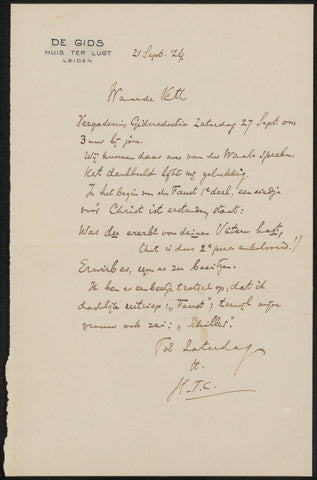 DE GIDS
HUIS TER LUGT
LEIDEN
21 Sept. '24
Waarde Veth
Vergadering Gidsredactie Zaterdag 27 Sept. om
3 uur bij jou.
Wij kunnen daar ons van der Waals spreken.
Het denkbeeld lijkt mij gelukkig.
In het begin van den Faust 1e deel, een eindje
vóór Christ ist erstanden staat:
Was du ererbt von deinen Vätern hast,
(hast is dus 2e pers. enkelvoud!)
Erwirb es, um es zu besitzen.
Ik ben er een beetje trotsch op, dat ik
dadelijk uitriep: "Faust", terwijl mijn
vrouw ook zei: "Schiller".
Tot Zaterdag
tt.
H.T.C.